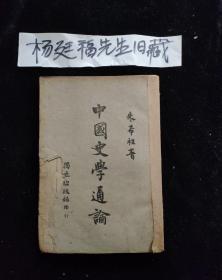 杨廷福先生旧藏
朱希祖著
中國史學通論
獨立出版社印行